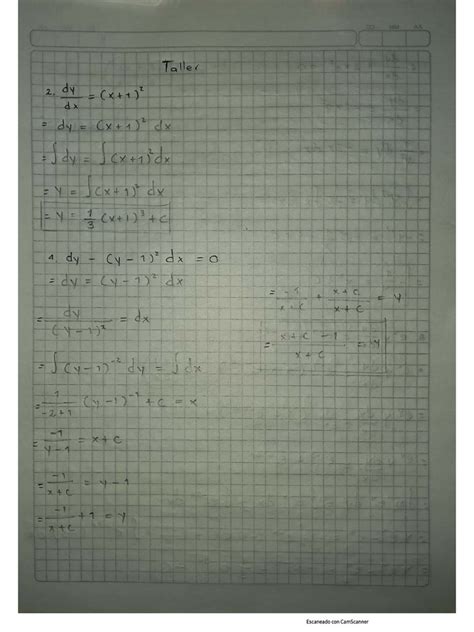 Taller
2. dy/dx = (x+1)²
= dy = (x+1)² dx
= ∫dy = ∫(x+1)² dx
= Y = ∫(x+1)² dx
= Y = 1/3 (x+1)³ + C
1. dy - (y-1)² dx = 0
= dy = (y-1)² dx
= dy/(y-1)² = dx
= ∫(y-1)⁻² dy = ∫dx
= 1/-2+1 (y-1)⁻¹ + c = x
= -1/y-1 = x+c
= -1/x+c = y-1
= -1/x+c + 1 = y
= -1/x+c + x+c/x+c = y
= x+c-1/x+c = y
Escaneado con CamScanner